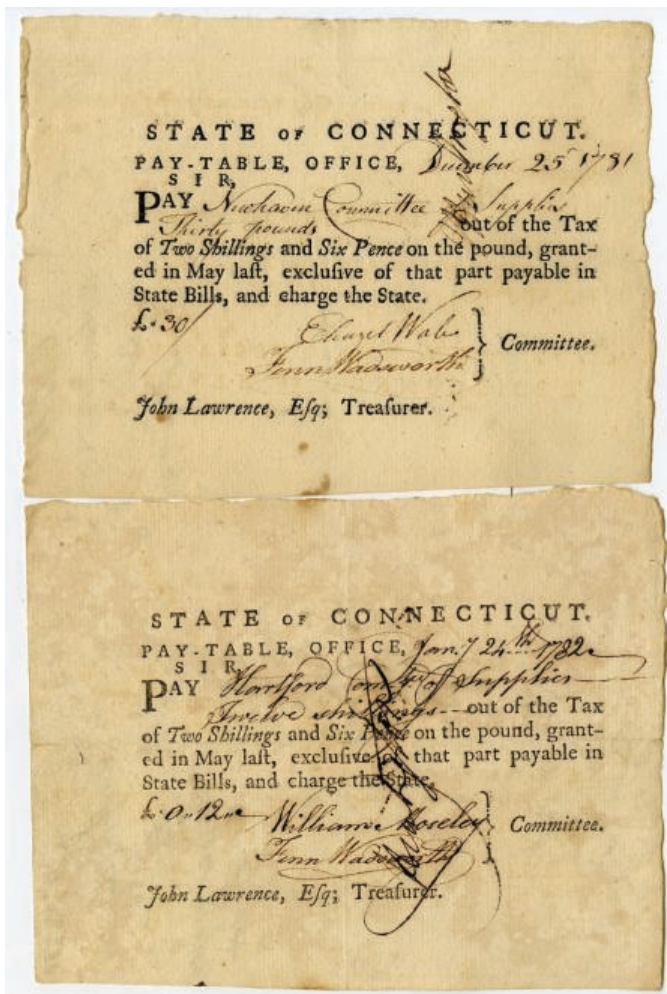 STATE OF CONNECTICUT.
PAY-TABLE, OFFICE, December 25 1781
SIR,
PAY Newhaven Committee of Supplies
Thirty pounds out of the Tax
of Two Shillings and Six Pence on the pound, grant-
ed in May laſt, exclusive of that part payable in
State Bills, and charge the State.
£.30/
Eleazel Wales
Fenn Wadsworth } Committee.
John Lawrence, Eſq; Treaſurer.
STATE OF CONNECTICUT.
PAY-TABLE, OFFICE, Jan.y 24th 1782
SIR,
PAY Hartford Comtee of Supplies
Twelve shillings out of the Tax
of Two Shillings and Six Pence on the pound, grant-
ed in May laſt, exclusive of that part payable in
State Bills, and charge the State.
£.0,,12,,
William Moseley
Fenn Wadsworth } Committee.
John Lawrence, Eſq; Treaſurer.